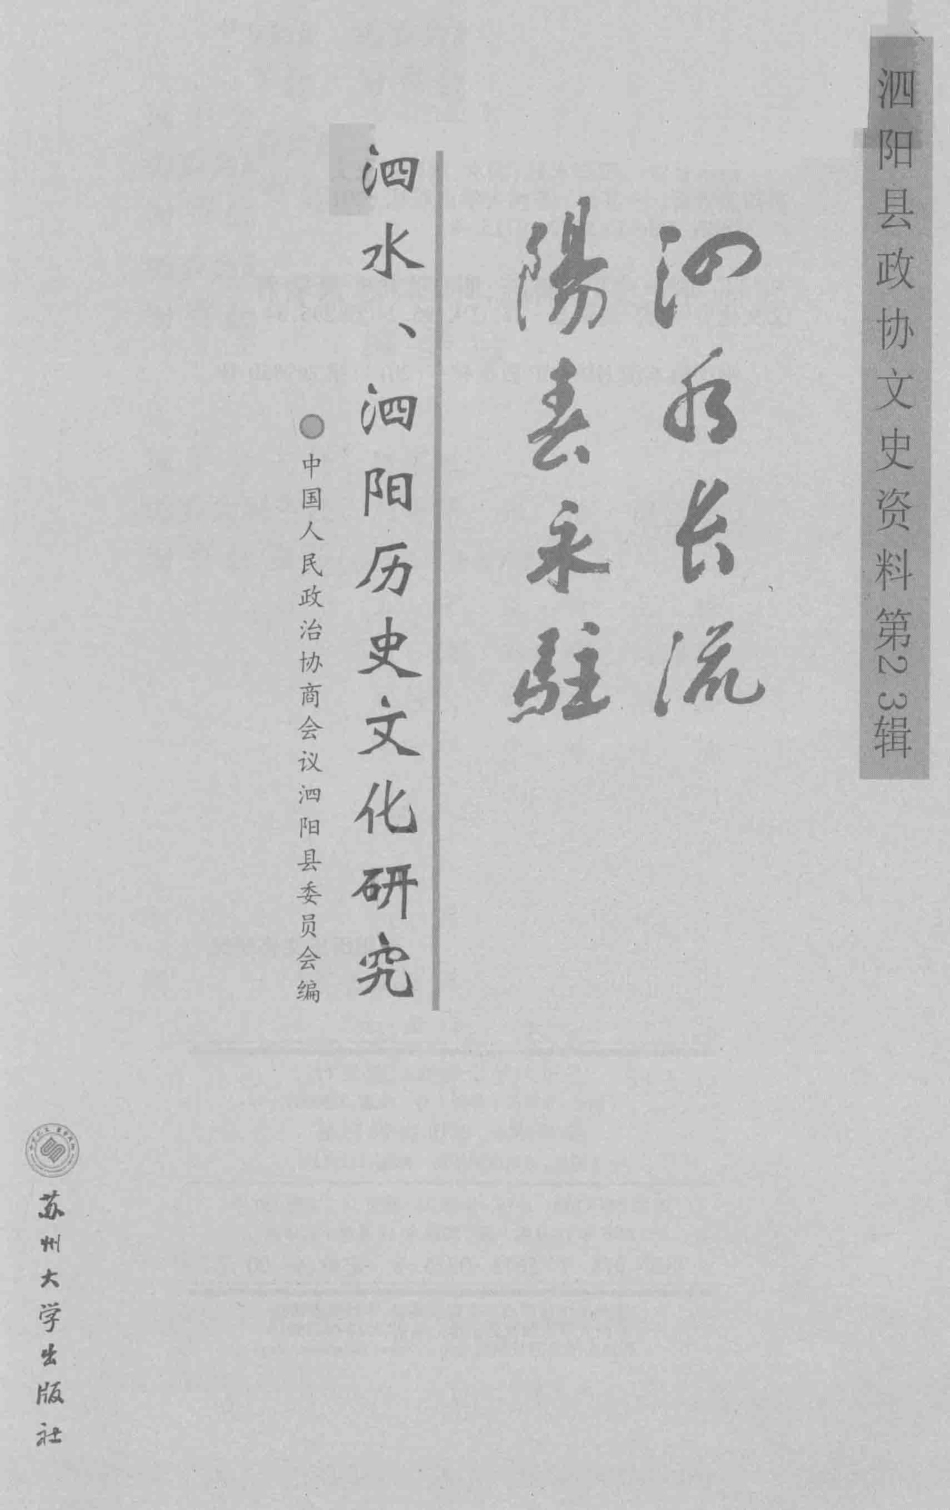 泗阳县政协文史资料第23辑
泗水长流
陽春永駐
泗水、泗阳历史文化研究
中国人民政治协商会议泗阳县委员会编
苏州大学出版社